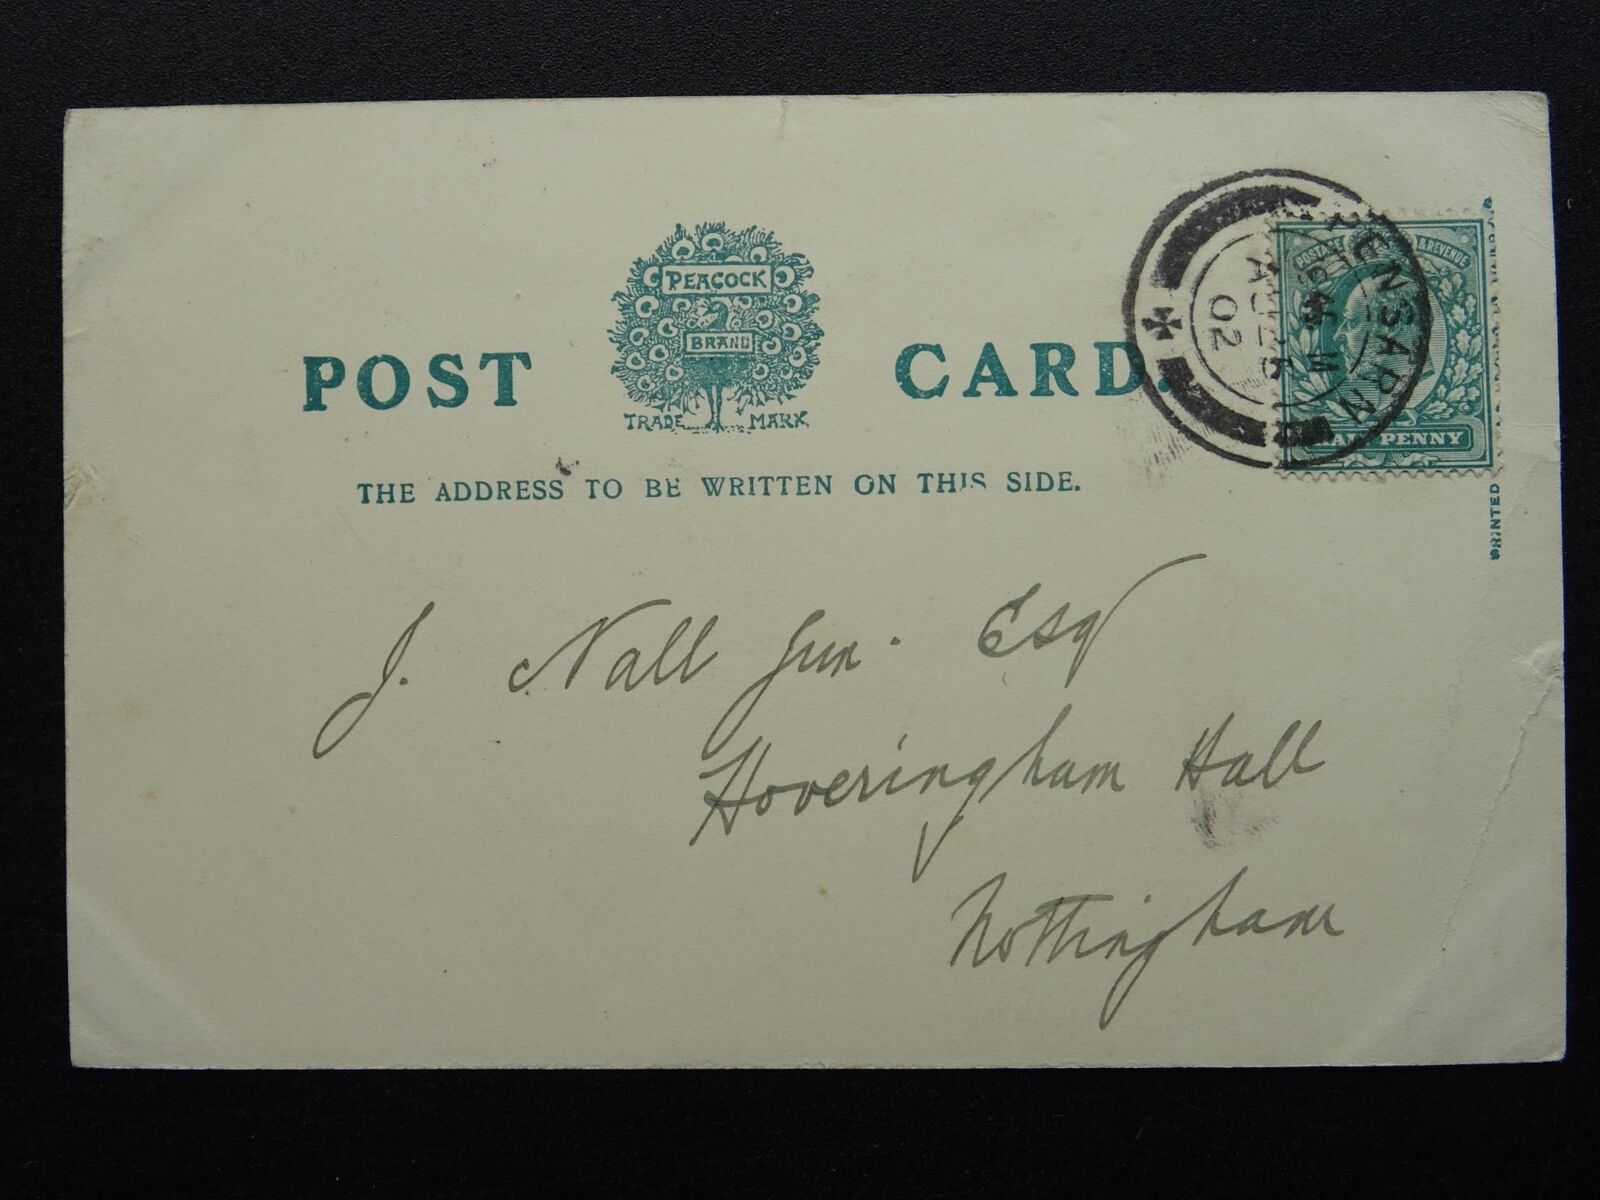 POST CARD.
PEACOCK
BRAND
TRADE MARK
THE ADDRESS TO BE WRITTEN ON THIS SIDE.
PENSARN
AU 25
02
& REVENUE
HALFPENNY
PRINTED
J. Nall Jun. Esq
Hoveringham Hall
Nottingham